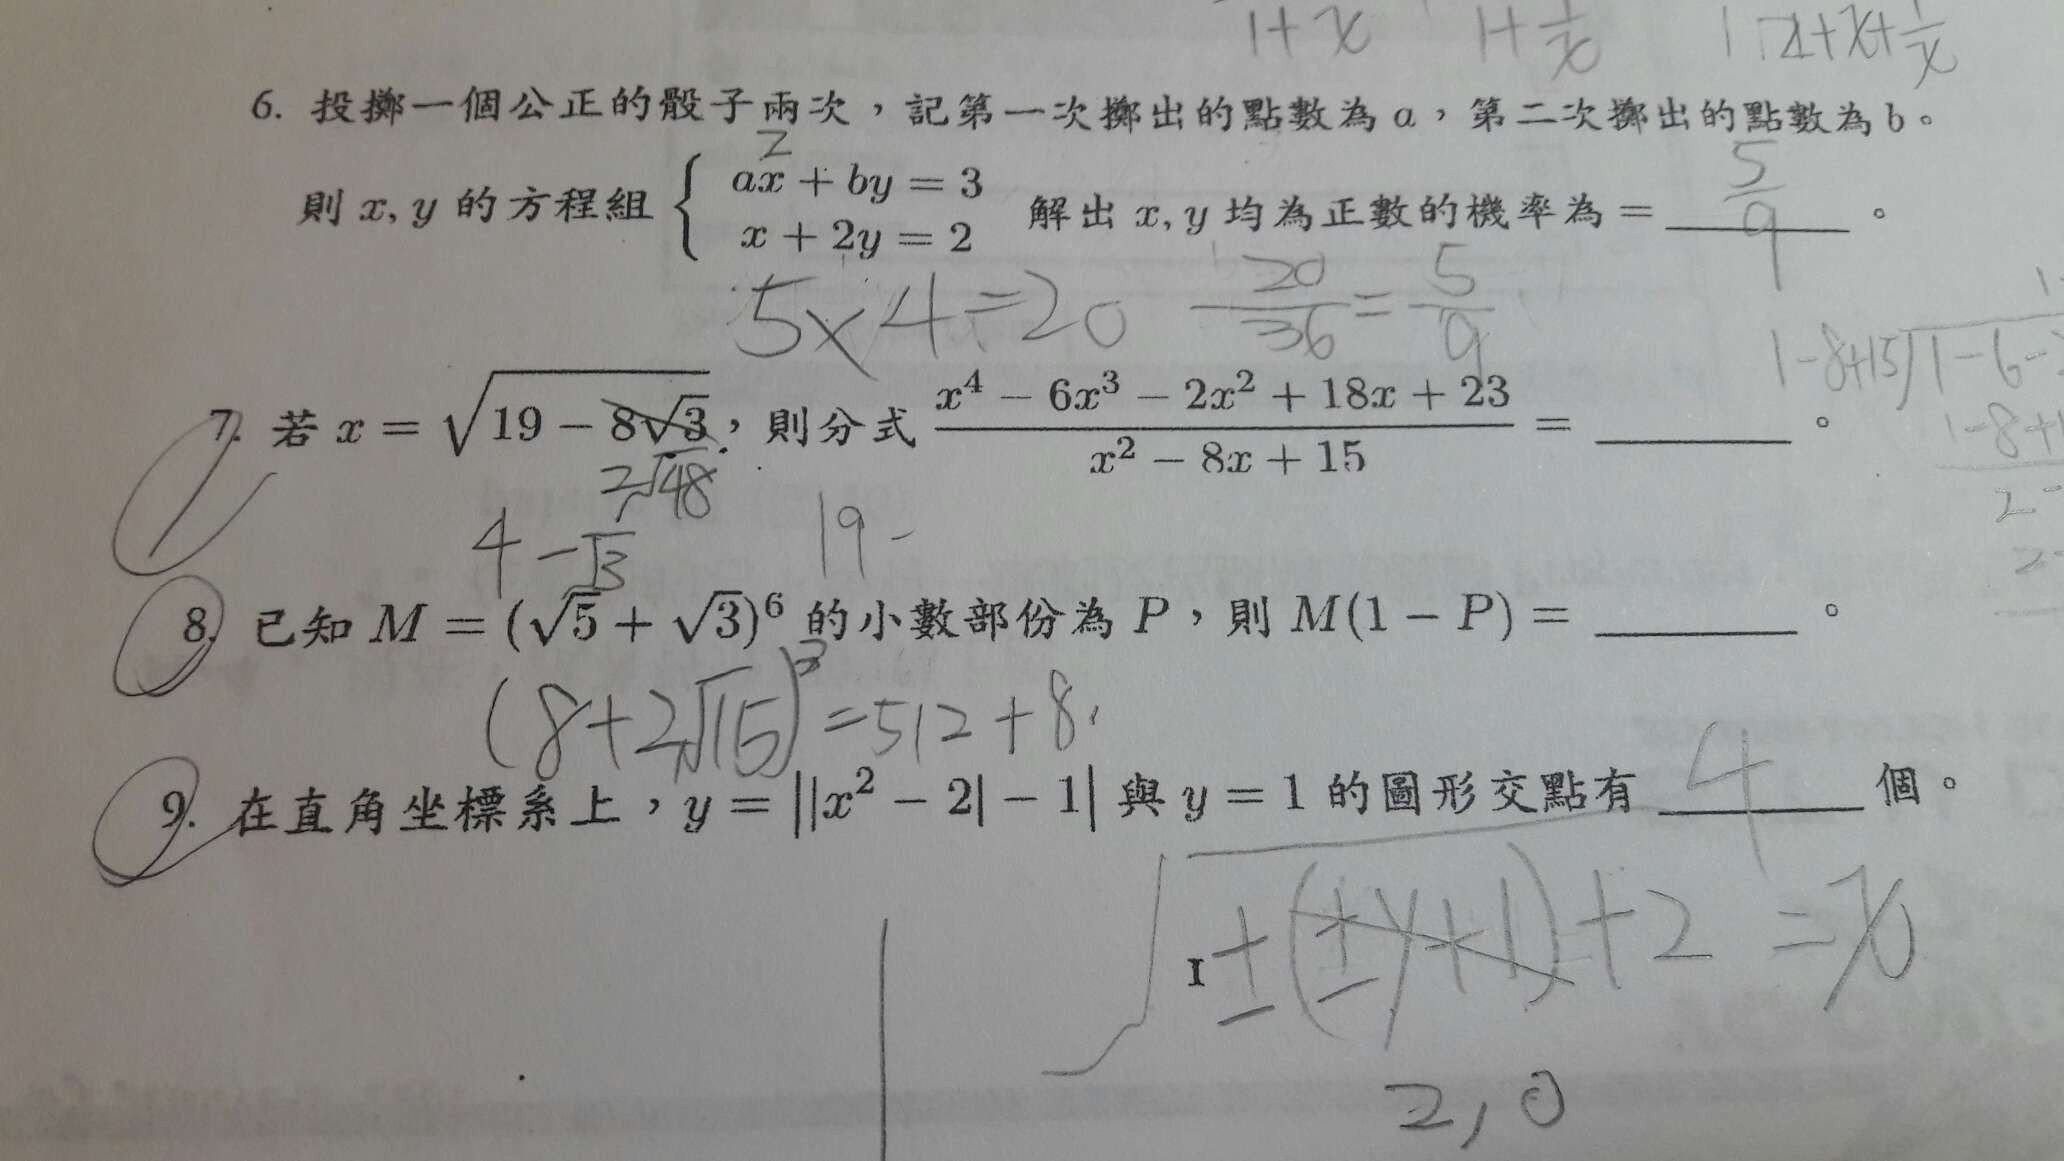 1+x 1+1/x 1+x+x+1/x
6. 投擲一個公正的骰子兩次，記第一次擲出的點數為 a，第二次擲出的點數為 b。
2
則 x, y 的方程組 { ax + by = 3
x + 2y = 2 解出 x, y 均為正數的機率為 = 5/9 。
5×4=20 20/36 = 5/9
1-8+15)1-6-
1-8+1
2-
2-
7. 若 x = √(19 − 8√3)，則分式 (x⁴ − 6x³ − 2x² + 18x + 23)/(x² − 8x + 15) = ______ 。
2√48
4-√3 19-
8. 已知 M = (√5 + √3)⁶ 的小數部份為 P，則 M(1 − P) = ______ 。
(8+2√15)³=512+8
9. 在直角坐標系上，y = ||x² − 2| − 1| 與 y = 1 的圖形交點有 4 個。
√(±(±y+1)+2) = x
I
2, 0